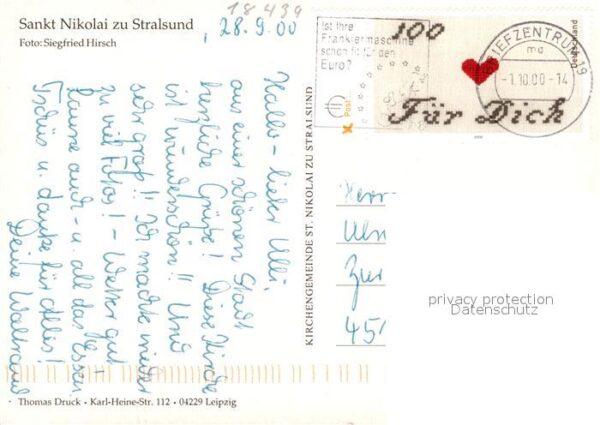 18439
Sankt Nikolai zu Stralsund
Foto: Siegfried Hirsch
28.9.00
Hallo - lieber Ulli,
aus einer schönen Stadt
herzliche Grüße! Diese Kirche
ist wunderschön!! Und
sehr groß!! Ich machte wieder
zu viel Fotos! - Wetter gut -
Laune auch - u. all das Essen
Tschüs u. danke für alles!
Deine Waltraud
Thomas Druck • Karl-Heine-Str. 112 • 04229 Leipzig
KIRCHENGEMEINDE ST. NIKOLAI ZU STRALSUND
Ist Ihre
Frankiermaschine
schon fit für den
Euro?
Post
100
Deutschland
Für Dich
BRIEFZENTRUM 19
mc
-1.10.00-14
Herr
Zur
451
privacy protection
Datenschutz